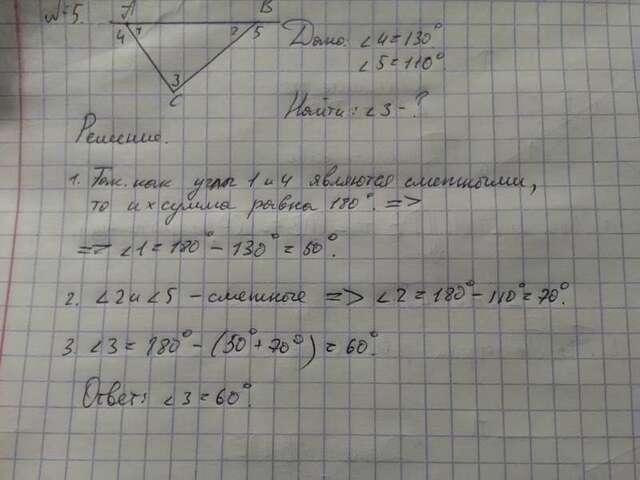 №5.
A B
4 1 2 5
3
C
Дано: ∠4=130°
∠5=110°
Найти: ∠3-?
Решение.
1. Так как углы 1 и 4 являются смежными,
то их сумма равна 180°. =>
=> ∠1=180°-130°=50°.
2. ∠2 и ∠5 - смежные => ∠2=180°-110°=70°.
3. ∠3=180°-(50°+70°)=60°.
Ответ: ∠3=60°.